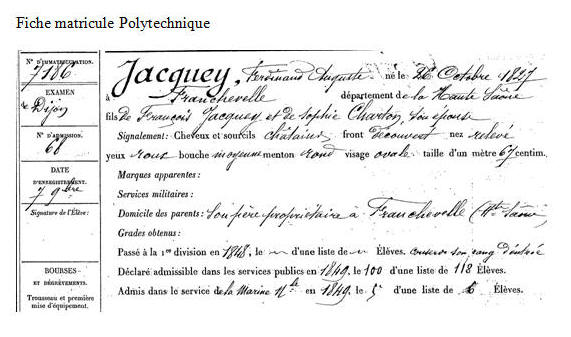 Fiche matricule Polytechnique
N° D'IMMATRICULATION.
7186
EXAMEN
de Dijon
N° D'ADMISSION.
68
DATE
D'ENREGISTREMENT.
7 9bre
Signature de l'Élève:
BOURSES
ET DÉGRÈVEMENTS.
Trousseau et première
mise d'équipement.
Jacquey, Ferdinand Auguste né le Octobre 1827
à Francheville département de la Haute Saône
fils de François Jacquey, et de Sophie Charton, son épouse
Signalement: Cheveux et sourcils châtains front découvert nez relevé
yeux roux bouche moyenne menton rond visage ovale taille d'un mètre 67 centim.
Marques apparentes:
Services militaires:
Domicile des parents: Son père propriétaire à Francheville (Hte Saône)
Grades obtenus:
Passé à la 1re division en 1848, le " d'une liste de " Élèves. conserve son rang d'entrée
Déclaré admissible dans les services publics en 1849, le 100 d'une liste de 118 Élèves.
Admis dans le service de la Marine Nle en 1849, le 5 d'une liste de Élèves.